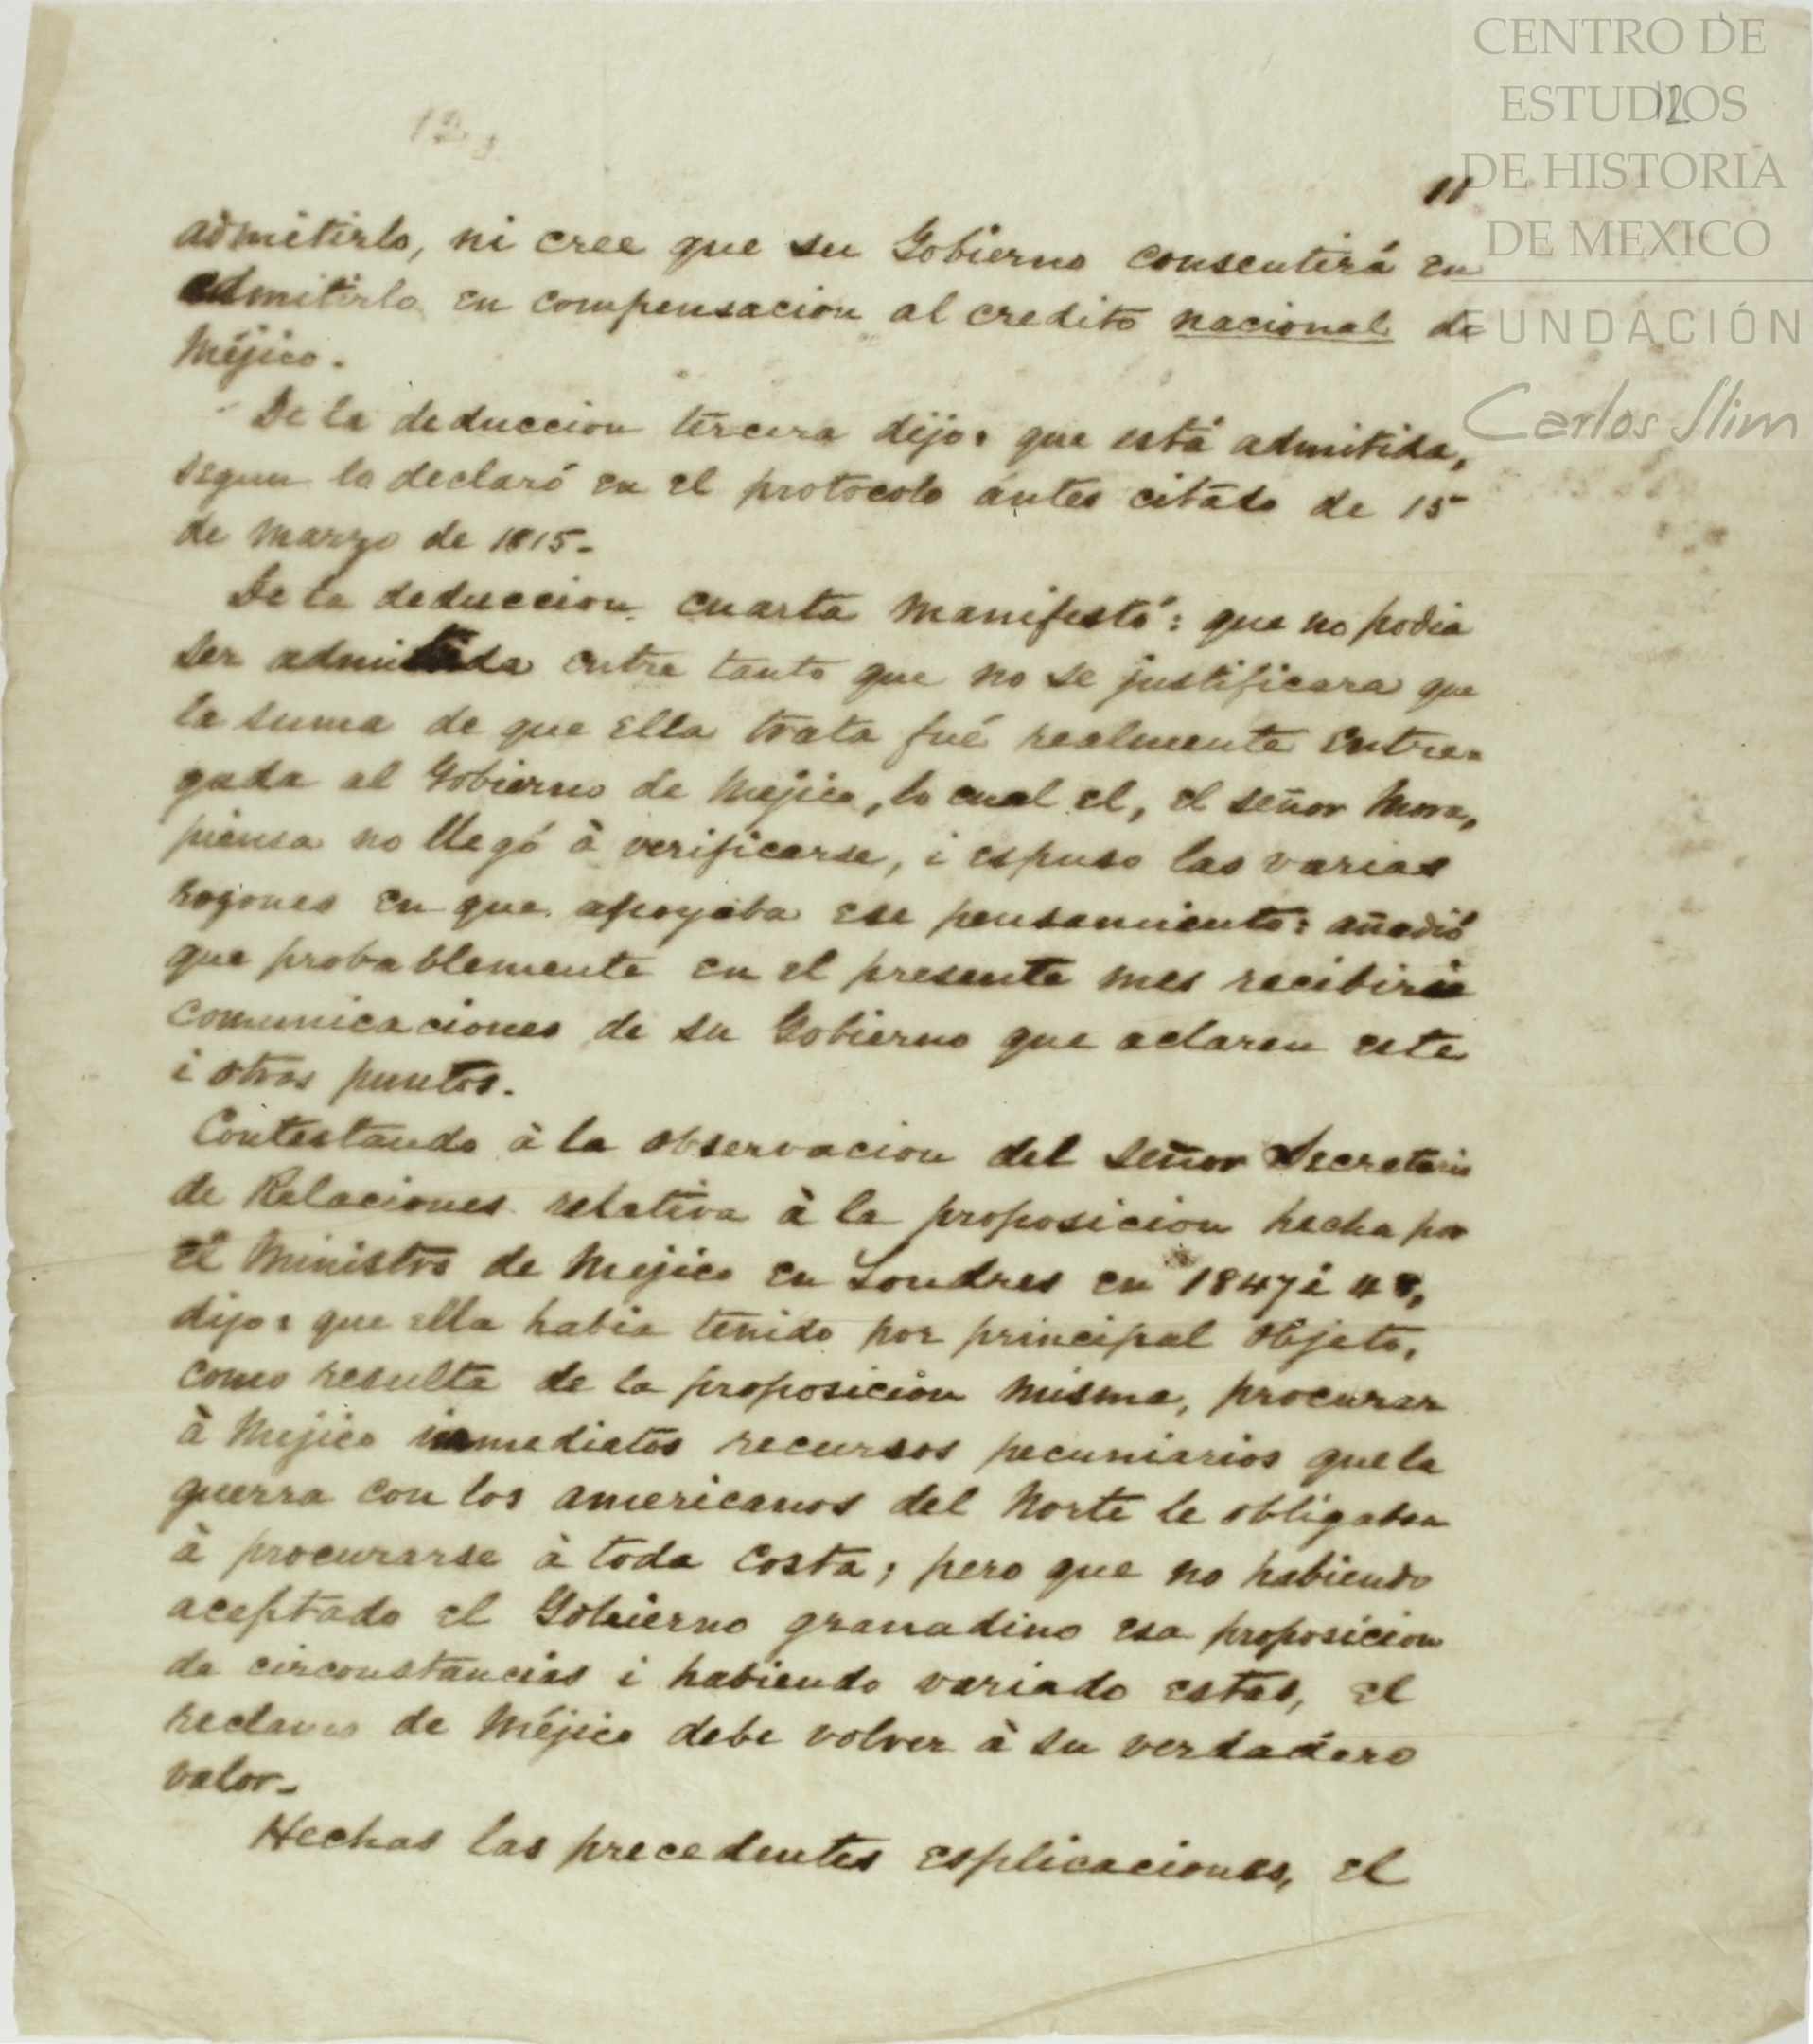 CENTRO DE
ESTUDIOS
DE HISTORIA
DE MEXICO
FUNDACIÓN
Carlos Slim
12
11
admitirlo, ni cree que su Gobierno consentirá en
admitirlo en compensacion al credito nacional de
Méjico.
De la deduccion tercera dijo: que está admitida,
segun lo declaró en el protocolo ántes citado de 15
de marzo de 1815.
De la deduccion cuarta manifestó: que no podia
ser admitida entre tanto que no se justificara que
la suma de que ella trata fué realmente entre-
gada al Gobierno de Mejico, lo cual el, el señor Mora,
piensa no llegó à verificarse, i espuso las varias
razones en que apoyaba ese pensamiento: añadió
que probablemente en el presente mes recibiria
comunicaciones de su Gobierno que aclaren este
i otros puntos.
Contestando à la observacion del señor Secretario
de Relaciones relativa à la proposicion hecha por
el Ministro de Mejico en Londres en 1847 i 48,
dijo: que ella habia tenido por principal objeto,
como resulta de la proposicion misma, procurar
à Mejico inmediatos recursos pecuniarios que la
guerra con los americanos del Norte le obligaban
à procurarse à toda costa; pero que no habiendo
aceptado el Gobierno granadino esa proposicion
de circonstancias i habiendo variado estas, el
reclamo de Méjico debe volver à su verdadero
valor.
Hechas las precedentes esplicaciones, el